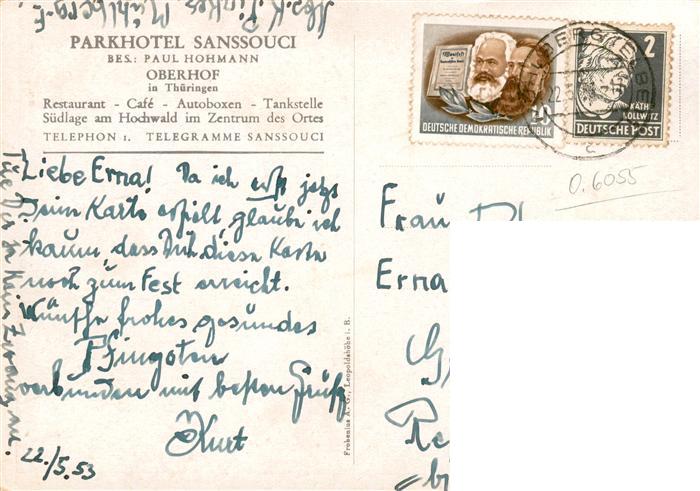 PARKHOTEL SANSSOUCI
BES.: PAUL HOHMANN
OBERHOF
in Thüringen
Restaurant - Café - Autoboxen - Tankstelle
Südlage am Hochwald im Zentrum des Ortes
TELEPHON 1. TELEGRAMME SANSSOUCI
Liebe Erna! Da ich erst jetzt
Deine Karte erhielt, glaube ich
kaum, dass Dich diese Karte
noch zum Fest erreicht.
Wünsche frohes gesundes
Pfingsten
verbunden mit besten Grüßen
Kurt
22./5.53
Frobenius A.-G., Leopoldshöhe i. B.
Manifest
DEUTSCHE DEMOKRATISCHE REPUBLIK
2
KÄTHE
KOLLWITZ
DEUTSCHE POST
22
c
0.6055
Frau
Erna